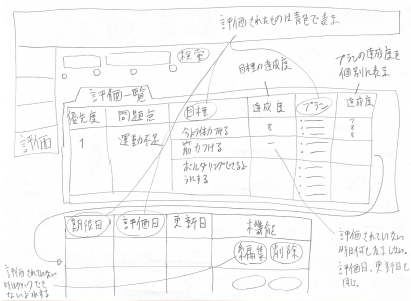 評価されたものは青色で表示
検索
目標の達成度
プランの達成度を
個別に表示
評価一覧
優先度 問題点 目標 達成度 プラン 達成度
評価
1 運動不足
8
筋力つける
ー
ボルダリングできるよ
うにする
期限日 評価日 更新日 機能
編集 削除
評価されていない
時は何も表示しない。
評価日、更新日も
同じ。
評価されていない